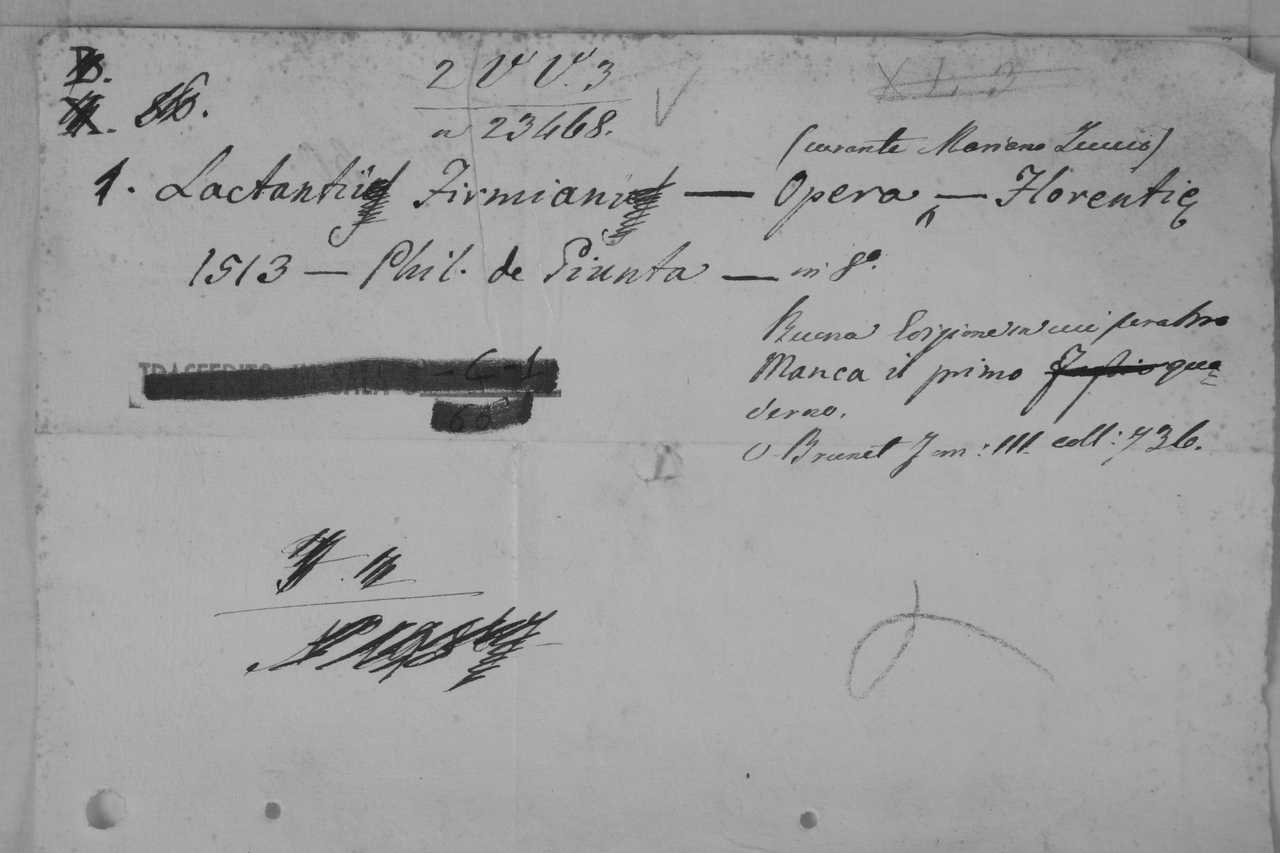 B.
2 V. V. 3
n 23468.
(curante Mariano Tuccio)
1. Lactantii Firmiani — Opera — Florentię
1513 — Phil. de Giunta — in 8°.
Buona Edizione in cui peraltro
Manca il primo qua=
derno.
V Brunet Tom: III. coll: 736.